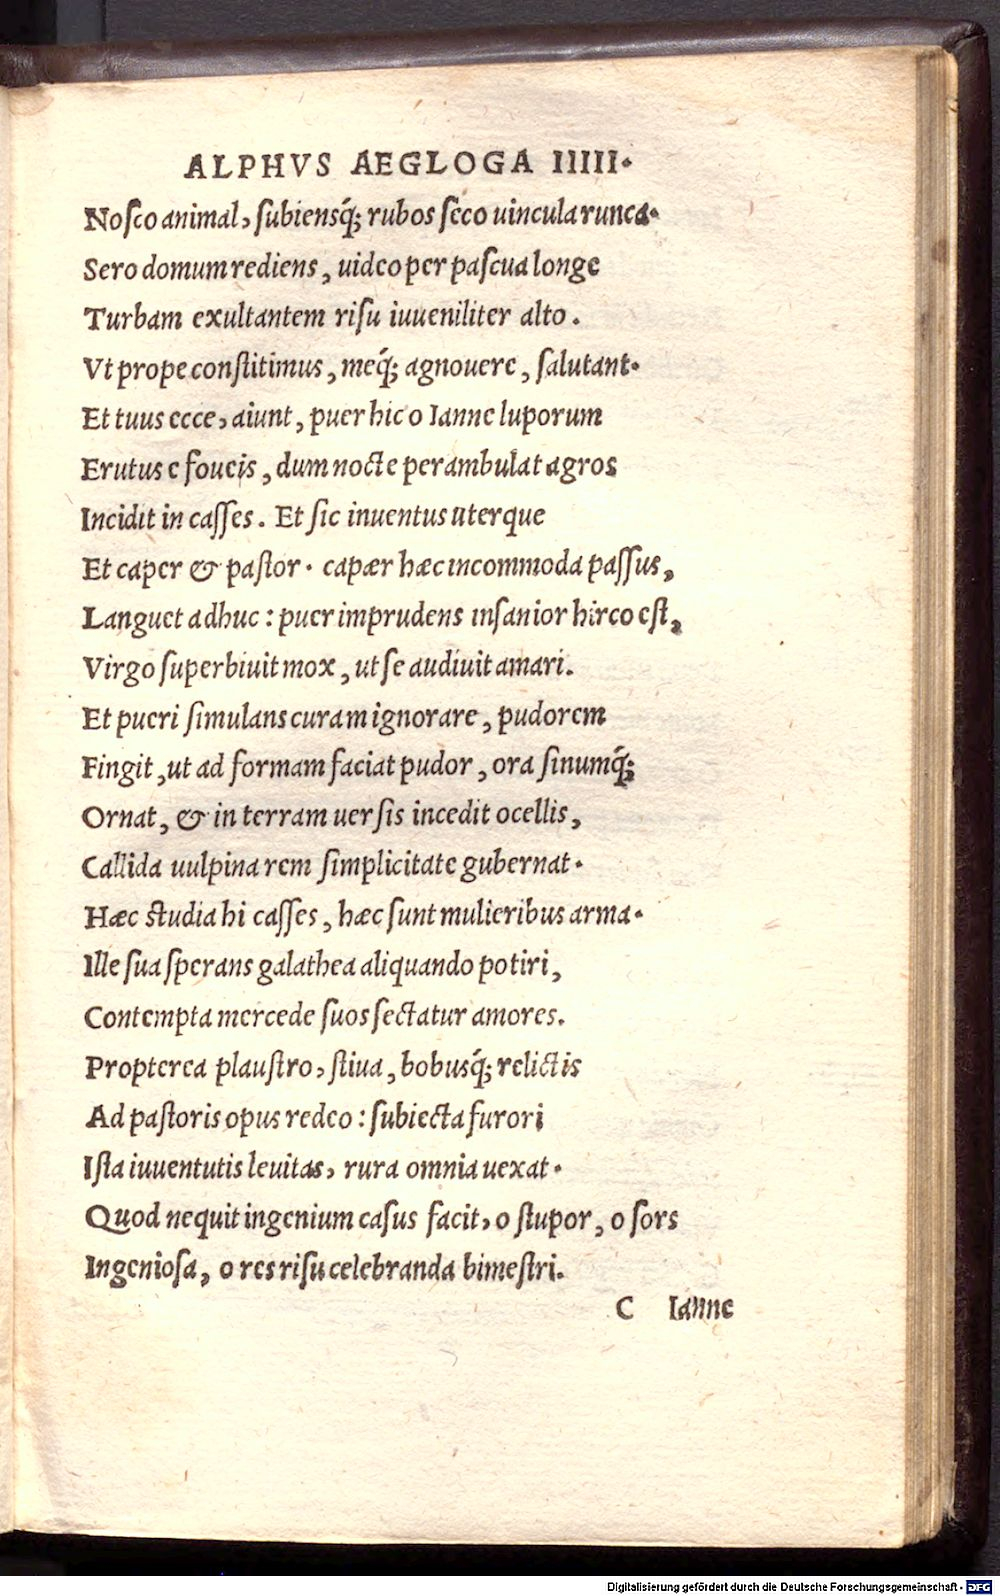 ALPHVS AEGLOGA IIIII.
Nosco animal, subiensq́; rubos seco uincula runca.
Sero domum rediens, uideo per pascua longe
Turbam exultantem risu iuueniliter alto.
Vt prope constitimus, meq́; agnouere, salutant.
Et tuus ecce, aiunt, puer hic o Ianne luporum
Erutus e foueis, dum nocte perambulat agros
Incidit in casses. Et sic inuentus uterque
Et caper & pastor. capær hæc incommoda passus,
Languet adhuc: puer imprudens insanior hirco est,
Virgo superbiuit mox, ut se audiuit amari.
Et pueri simulans curam ignorare, pudorem
Fingit, ut ad formam faciat pudor, ora sinumq́;
Ornat, & in terram uersis incedit ocellis,
Callida uulpina rem simplicitate gubernat.
Hæc studia hi casses, hæc sunt mulieribus arma.
Ille sua sperans galathea aliquando potiri,
Contempta mercede suos sectatur amores.
Propterea plaustro, stiua, bobusq́; relictis
Ad pastoris opus redeo: subiecta furori
Ista iuuentutis leuitas, rura omnia uexat.
Quod nequit ingenium casus facit, o stupor, o sors
Ingeniosa, o res risu celebranda bimestri.
C Ianne
Digitalisierung gefördert durch die Deutsche Forschungsgemeinschaft - DFG